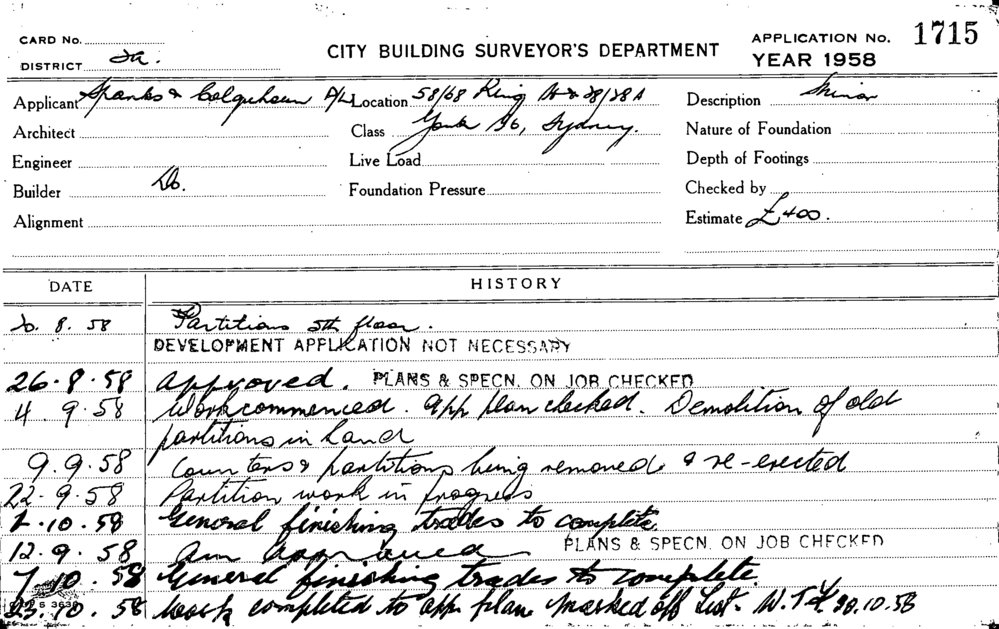 CARD No.
DISTRICT 2a.
CITY BUILDING SURVEYOR'S DEPARTMENT
APPLICATION No. 1715
YEAR 1958
Applicant Spanks & Colquhoun P/L Location 58/68 King St & 28/28A Description Minor
Architect Class York St, Sydney. Nature of Foundation
Engineer Live Load Depth of Footings
Builder Do. Foundation Pressure Checked by
Alignment Estimate £400.
DATE HISTORY
8. 58 Partitions 5th floor.
DEVELOPMENT APPLICATION NOT NECESSARY
26.8.58 Approved. PLANS & SPECN. ON JOB CHECKED
4 9.58 Work commenced. App plan checked. Demolition of old
partitions in hand
9.9.58 Counters & partitions being removed & re-erected
22.9.58 Partition work in progress
1.10.58 General finishing trades to complete.
12.9.58 Am approved PLANS & SPECN. ON JOB CHECKED
7 10.58 General finishing trades to complete.
10.58 Work completed to app plan marked off List. W.T. 30.10.58